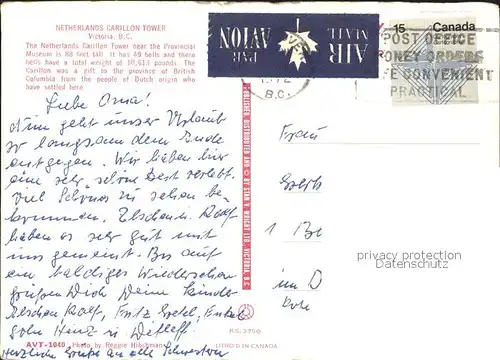 NETHERLANDS CARILLON TOWER
Victoria, B.C.
The Netherlands Carillon Tower near the Provincial
Museum is 88 feet tall. It has 49 bells and these
bells have a total weight of 10,613 pounds. The
Carillon was a gift to the province of British
Columbia from the people of Dutch origin who
have settled here.
PAR AVION
AIR MAIL
15 Canada
POST OFFICE
MONEY ORDERS
CONVENIENT
PRACTICAL
B.C.
PUBLISHED, DISTRIBUTED AND © BY STAN V. WRIGHT LTD., VICTORIA, B.C.
Liebe Oma!
Nun geht unser Urlaub
so langsam dem Ende
entgegen. Wir haben hier
eine sehr schöne Zeit verlebt.
Viel Schönes zu sehen be-
kommen. Elschen u. Rolf
haben es sehr gut mit
uns gemeint. Bis auf
ein baldiges Wiedersehen
grüßen Dich Deine Kinder
Elschen Rolf, Fritz Gretel, Enkel
sohn Heinz u Detleff.
Herzliche Grüße an alle Schwestern
Frau
1 Be
im D
privacy protection
watermarks
AVT-1040 Photo by Reggie Hibshman
KS. 3750
LITHO'D IN CANADA